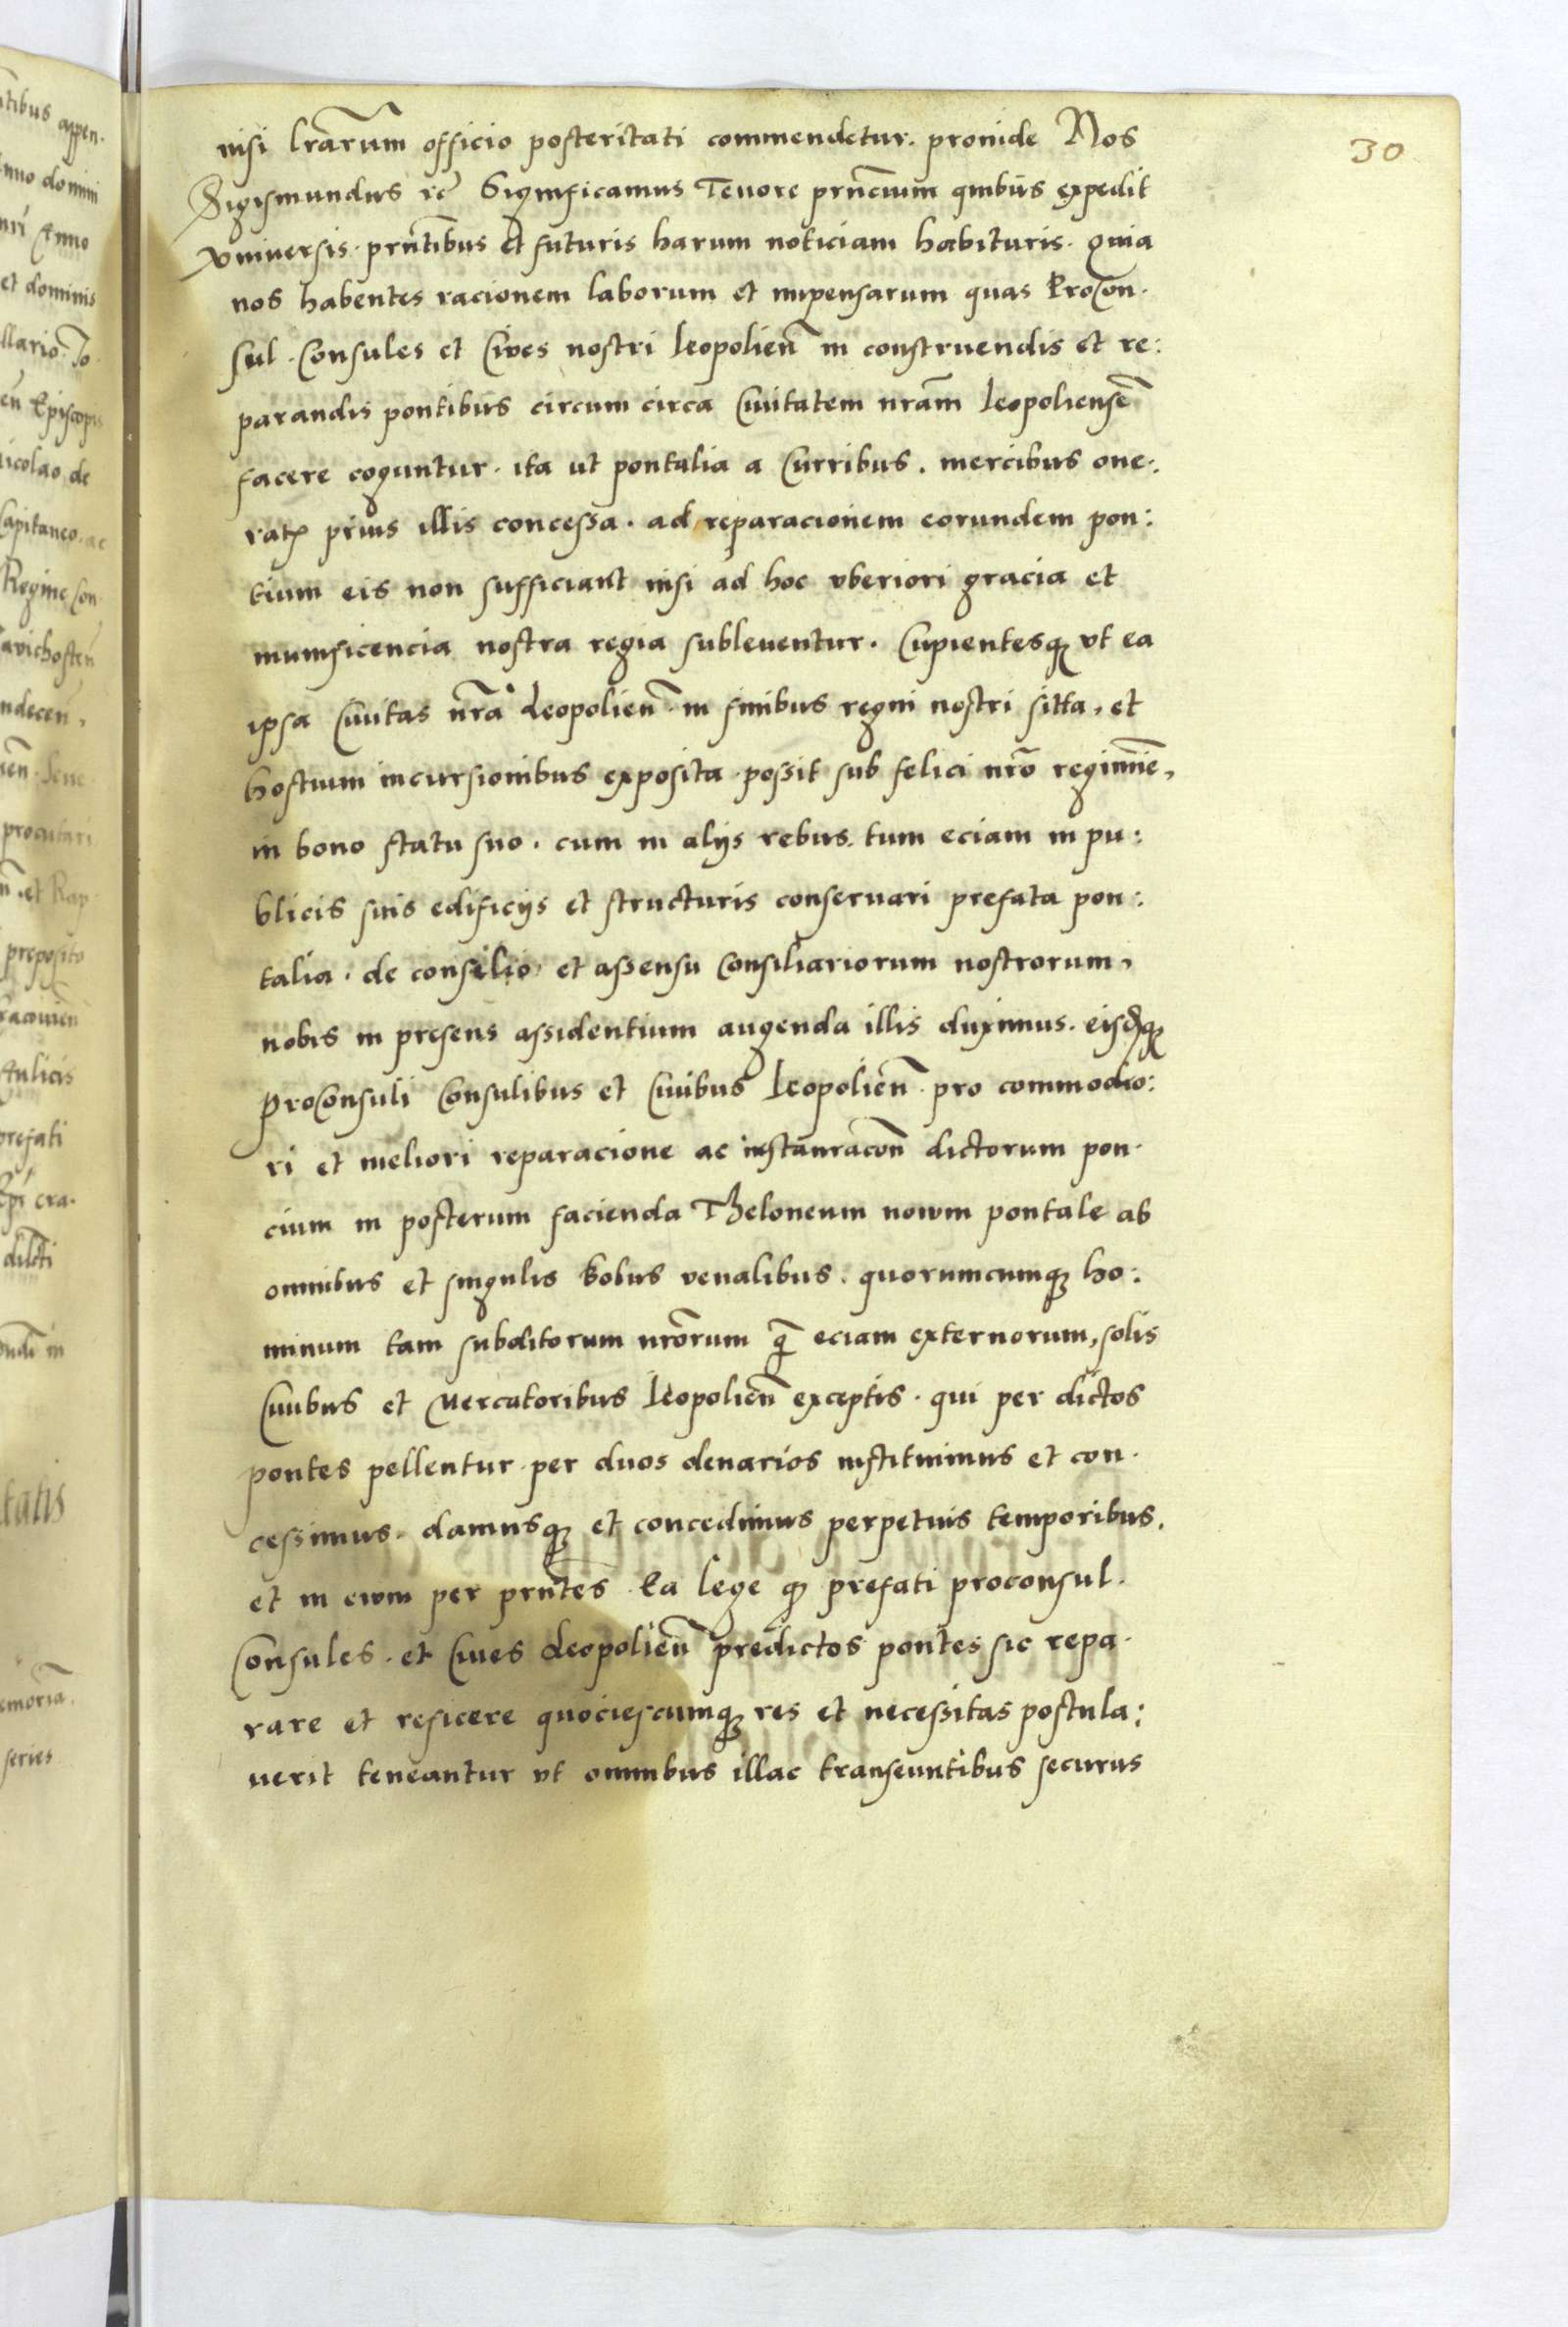 30
nisi lrarum officio posteritati commendetur. proinde Nos
Sigismundus rc Significamus Tenore prncium quibus expedit
vniuersis. prntibus et futuris harum noticiam habituris. quia
nos habentes racionem laborum et impensarum quas Procon.
sul. Consules et Ciues nostri leopolien in construendis et re:
parandis pontibus circum circa Ciuitatem nram leopoliense
facere coguntur. ita ut pontalia a Curribus. mercibus one:
ratis prius illis concessa. ad reparacionem eorundem pon:
tium eis non sufficiant nisi ad hoc vberiori gracia et
munificencia nostra regia subleuentur. Cupientesq vt ea
ipsa Ciuitas nra Leopolien. in finibus regni nostri sitta, et
hostium incursionibus exposita. possit sub felici nro regimie,
in bono statu suo. cum in alijs rebus. tum eciam in pu:
blicis suis edificijs et structuris conseruari prefata pon:
talia. de consilio et assensu Consiliariorum nostrorum,
nobis in presens assidentium augenda illis duximus. eisdq
proConsuli Consulibus et Ciuibus leopolien. pro commodio:
ri et meliori reparacione ac instauracon dictorum pon.
cium in posterum facienda Theloneum nowm pontale ab
omnibus et singulis bobus venalibus. quorumcumq ho:
minum tam subditorum nrorum q eciam externorum, solis
Ciuibus et Mercatoribus leopolien exceptis. qui per dictos
pontes pellentur. per duos denarios instituimus et con.
cessimus. damusq et concedimus perpetuis temporibus.
et in ewm per prntes. Ea lege q prefati proconsul.
Consules. et Ciues Leopolien predictos pontes sic repa.
rare et reficere quociescumq res et necessitas postula:
uerit teneantur vt omnibus illac transeuntibus securus